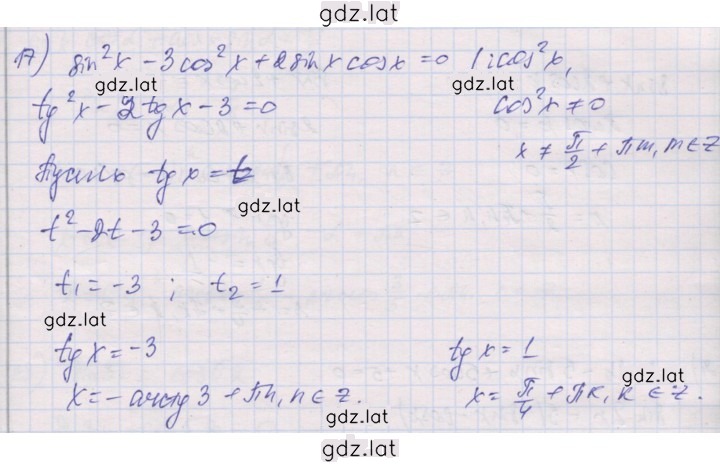 gdz.lat
17) sin²x - 3cos²x + 2sinx cosx = 0 | : cos²x,
gdz.lat gdz.lat
tg²x - 2tgx - 3 = 0 cos²x ≠ 0
x ≠ π/2 + πm, m ∈ Z
Пусть tgx = t
gdz.lat
t² - 2t - 3 = 0
t₁ = -3 ; t₂ = 1
gdz.lat
tgx = -3 tgx = 1
gdz.lat
x = -arctg3 + πn, n ∈ Z. x = π/4 + πk, k ∈ Z.
gdz.lat
gdz.lat